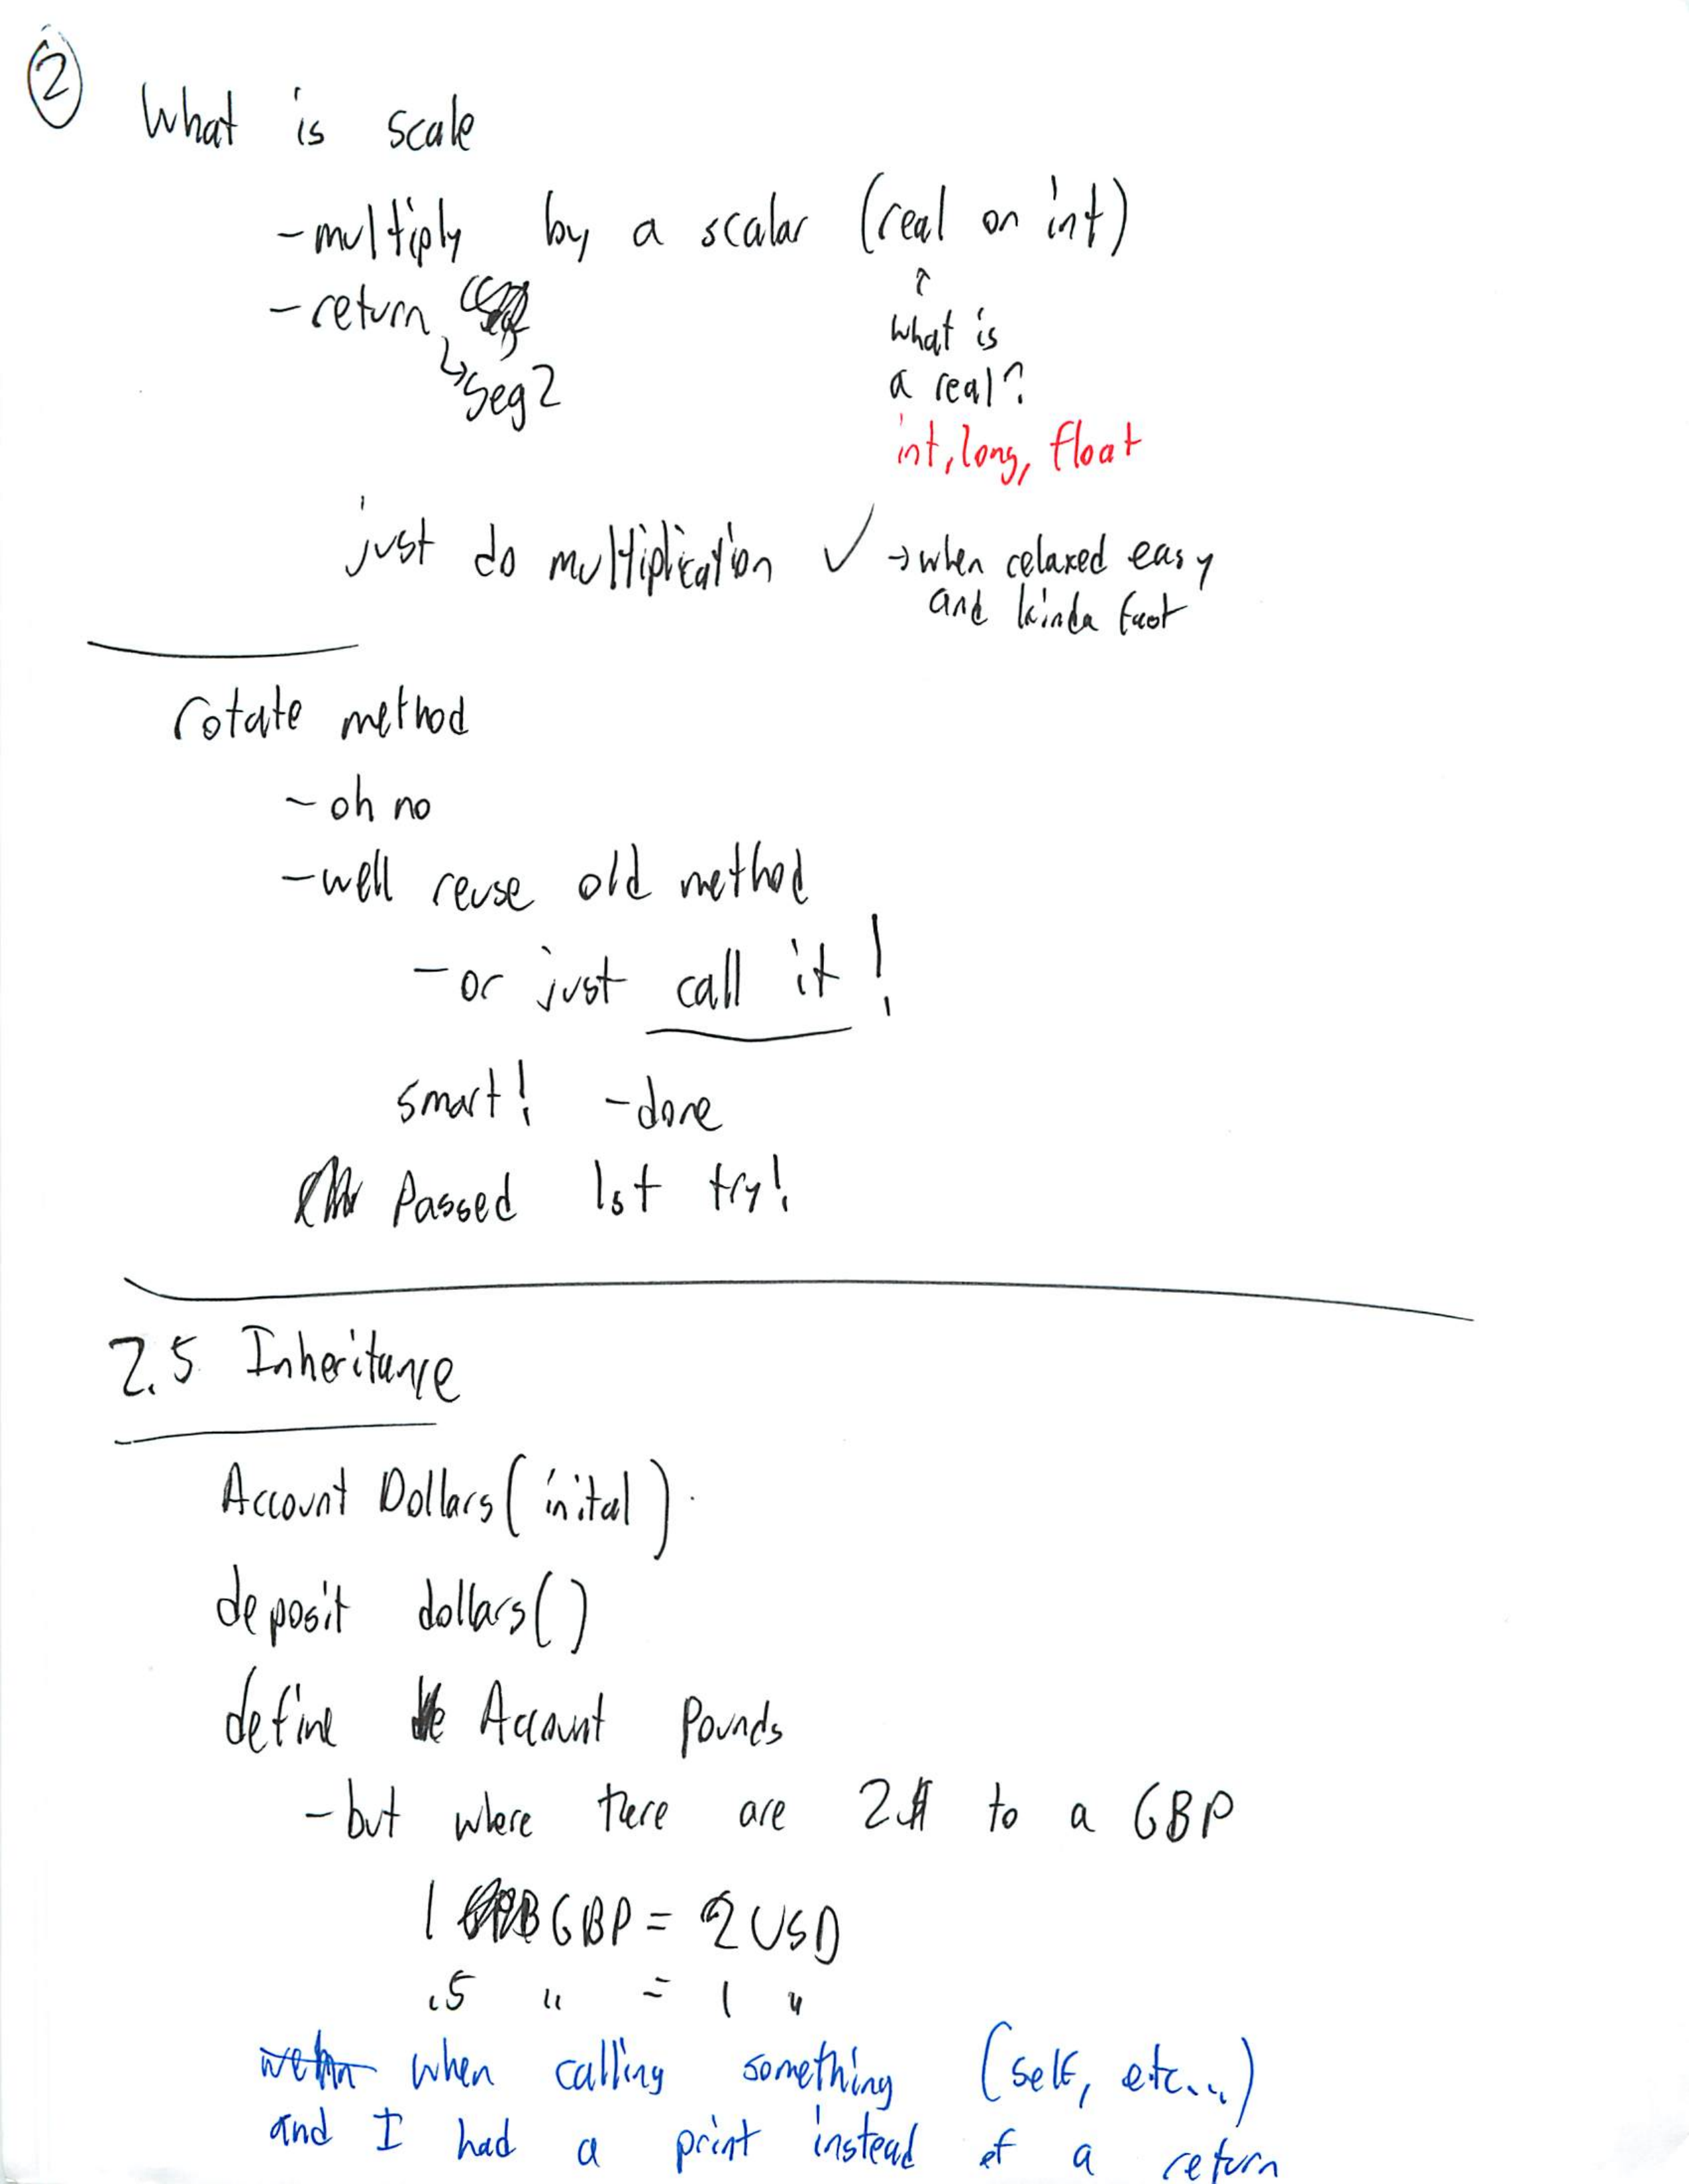 2
What is scale
-multiply by a scalar (real on int)
-return
↑
what is
↳Seg2
a real?
int, long, float
just do multiplication ✓ →when relaxed easy
and kinda fast
rotate method
-oh no
-well reuse old method
-or just call it!
smart! -done
Passed 1st try!
2.5 Inheritance
Account Dollars (inital)
deposit dollars()
define Account Pounds
-but where there are 2$ to a GBP
1 GBP = 2 USD
.5 " = 1 "
when calling something (self, etc...)
and I had a print instead of a return